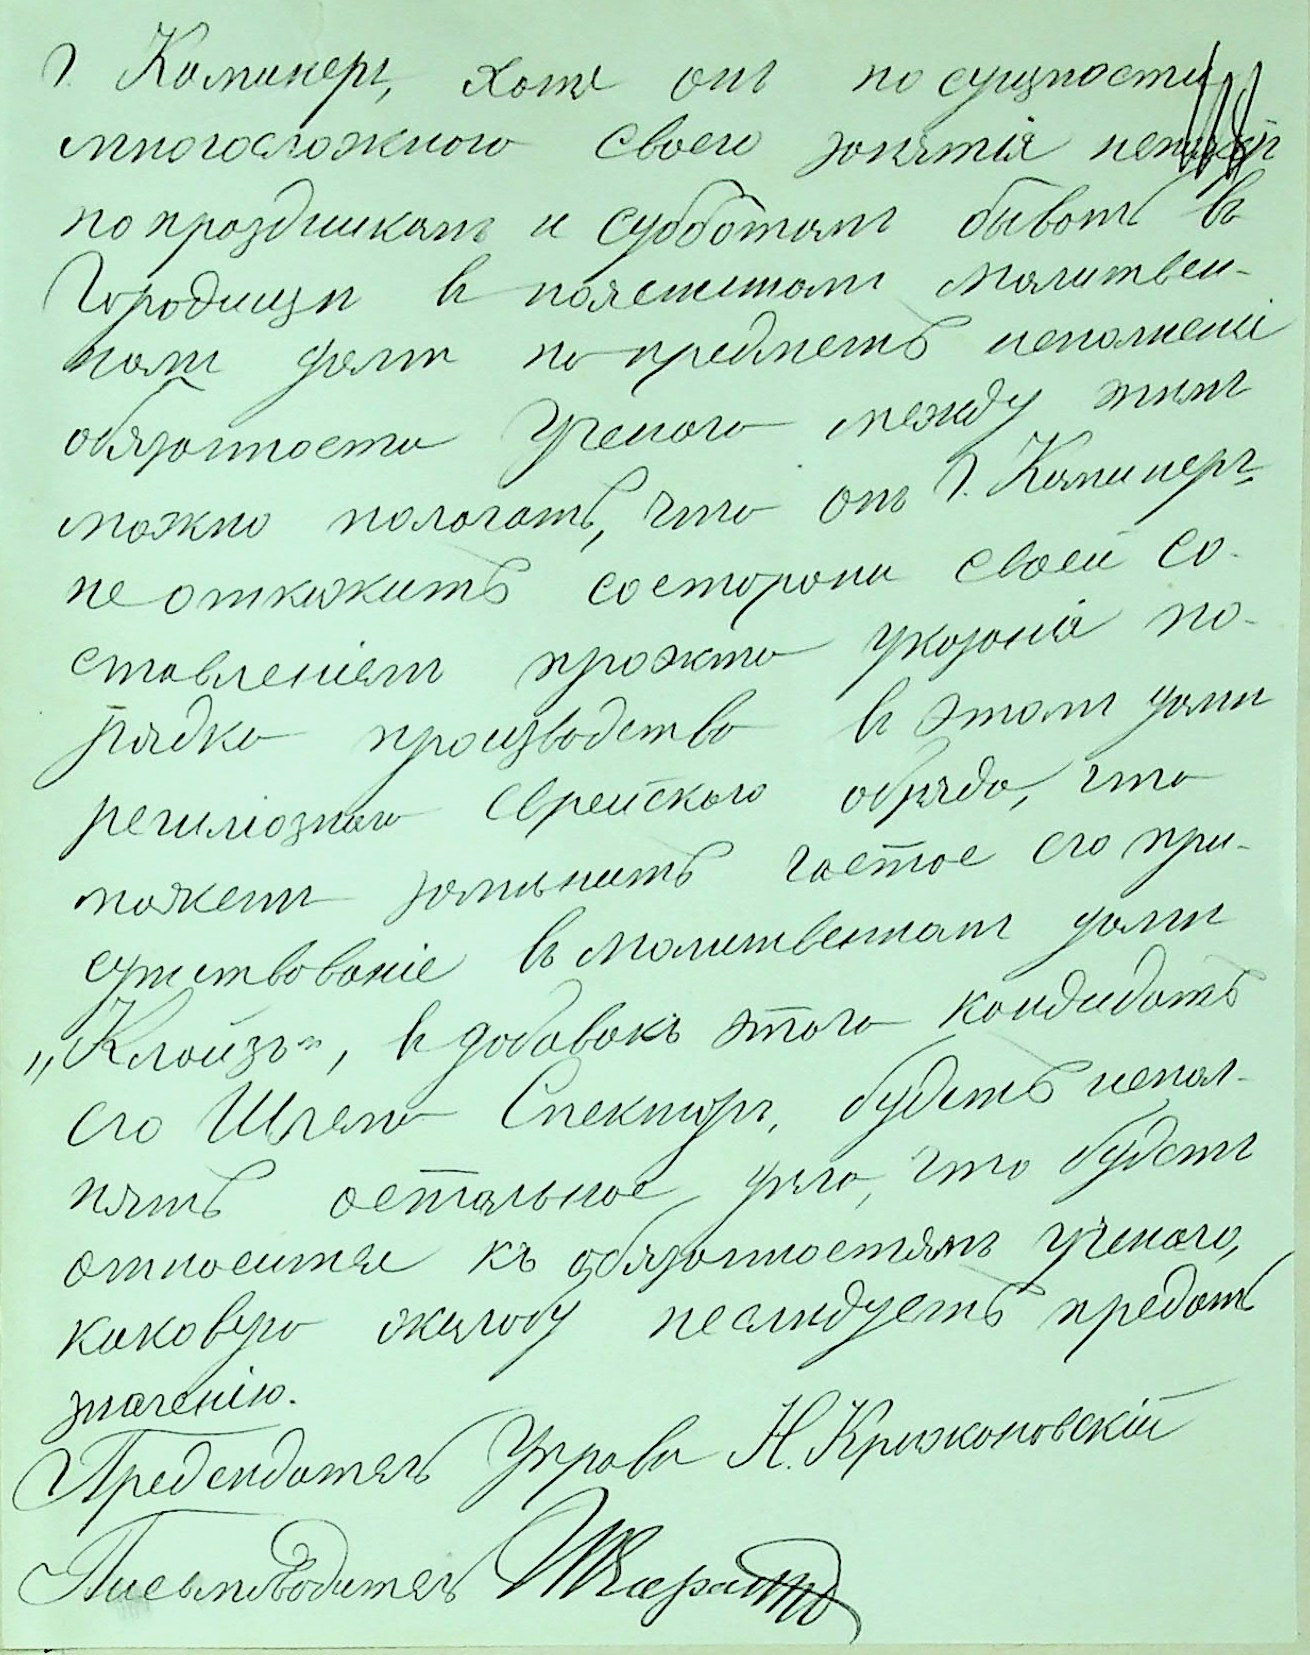 г. Каминеръ, хотя онъ по сущности
многосложнаго своего занятія
по праздникамъ и субботамъ бываетъ въ
Городищѣ въ поясненномъ молитвен-
номъ домѣ по предметъ исполненія
обязанности Ученаго между тѣмъ
можно полагать, что онъ г. Каминеръ,
не откажитъ со стороны своей со-
ставленіемъ проэкта указанія по-
рядка производства въ этомъ домѣ
религіознаго Еврейскаго обряда, что
можетъ замѣнить частое его при-
сутствованіе въ молитвенномъ домѣ
„Клойзъ", въ добавокъ этого кандидатъ
его Шлема Спекторъ, будетъ испол-
нять остальное дѣло, что будетъ
относится къ обязанностямъ ученаго,
каковую жалобу неслѣдуетъ предать
значенію.
Предсѣдатель Управы Н. Крижановскій
Письмоводитель